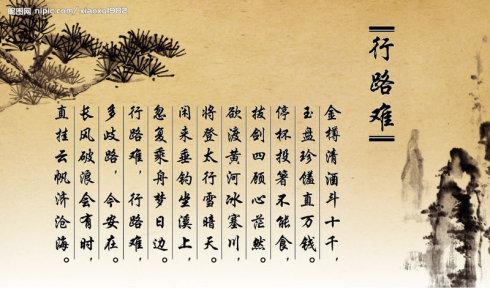 昵图网 nipic.com/xiaoxq1982
行路难
金樽清酒斗十千，
玉盘珍馐直万钱。
停杯投箸不能食，
拔剑四顾心茫然。
欲渡黄河冰塞川，
将登太行雪暗天。
闲来垂钓坐溪上，
忽复乘舟梦日边。
行路难，行路难，
多歧路，今安在。
长风破浪会有时，
直挂云帆济沧海。